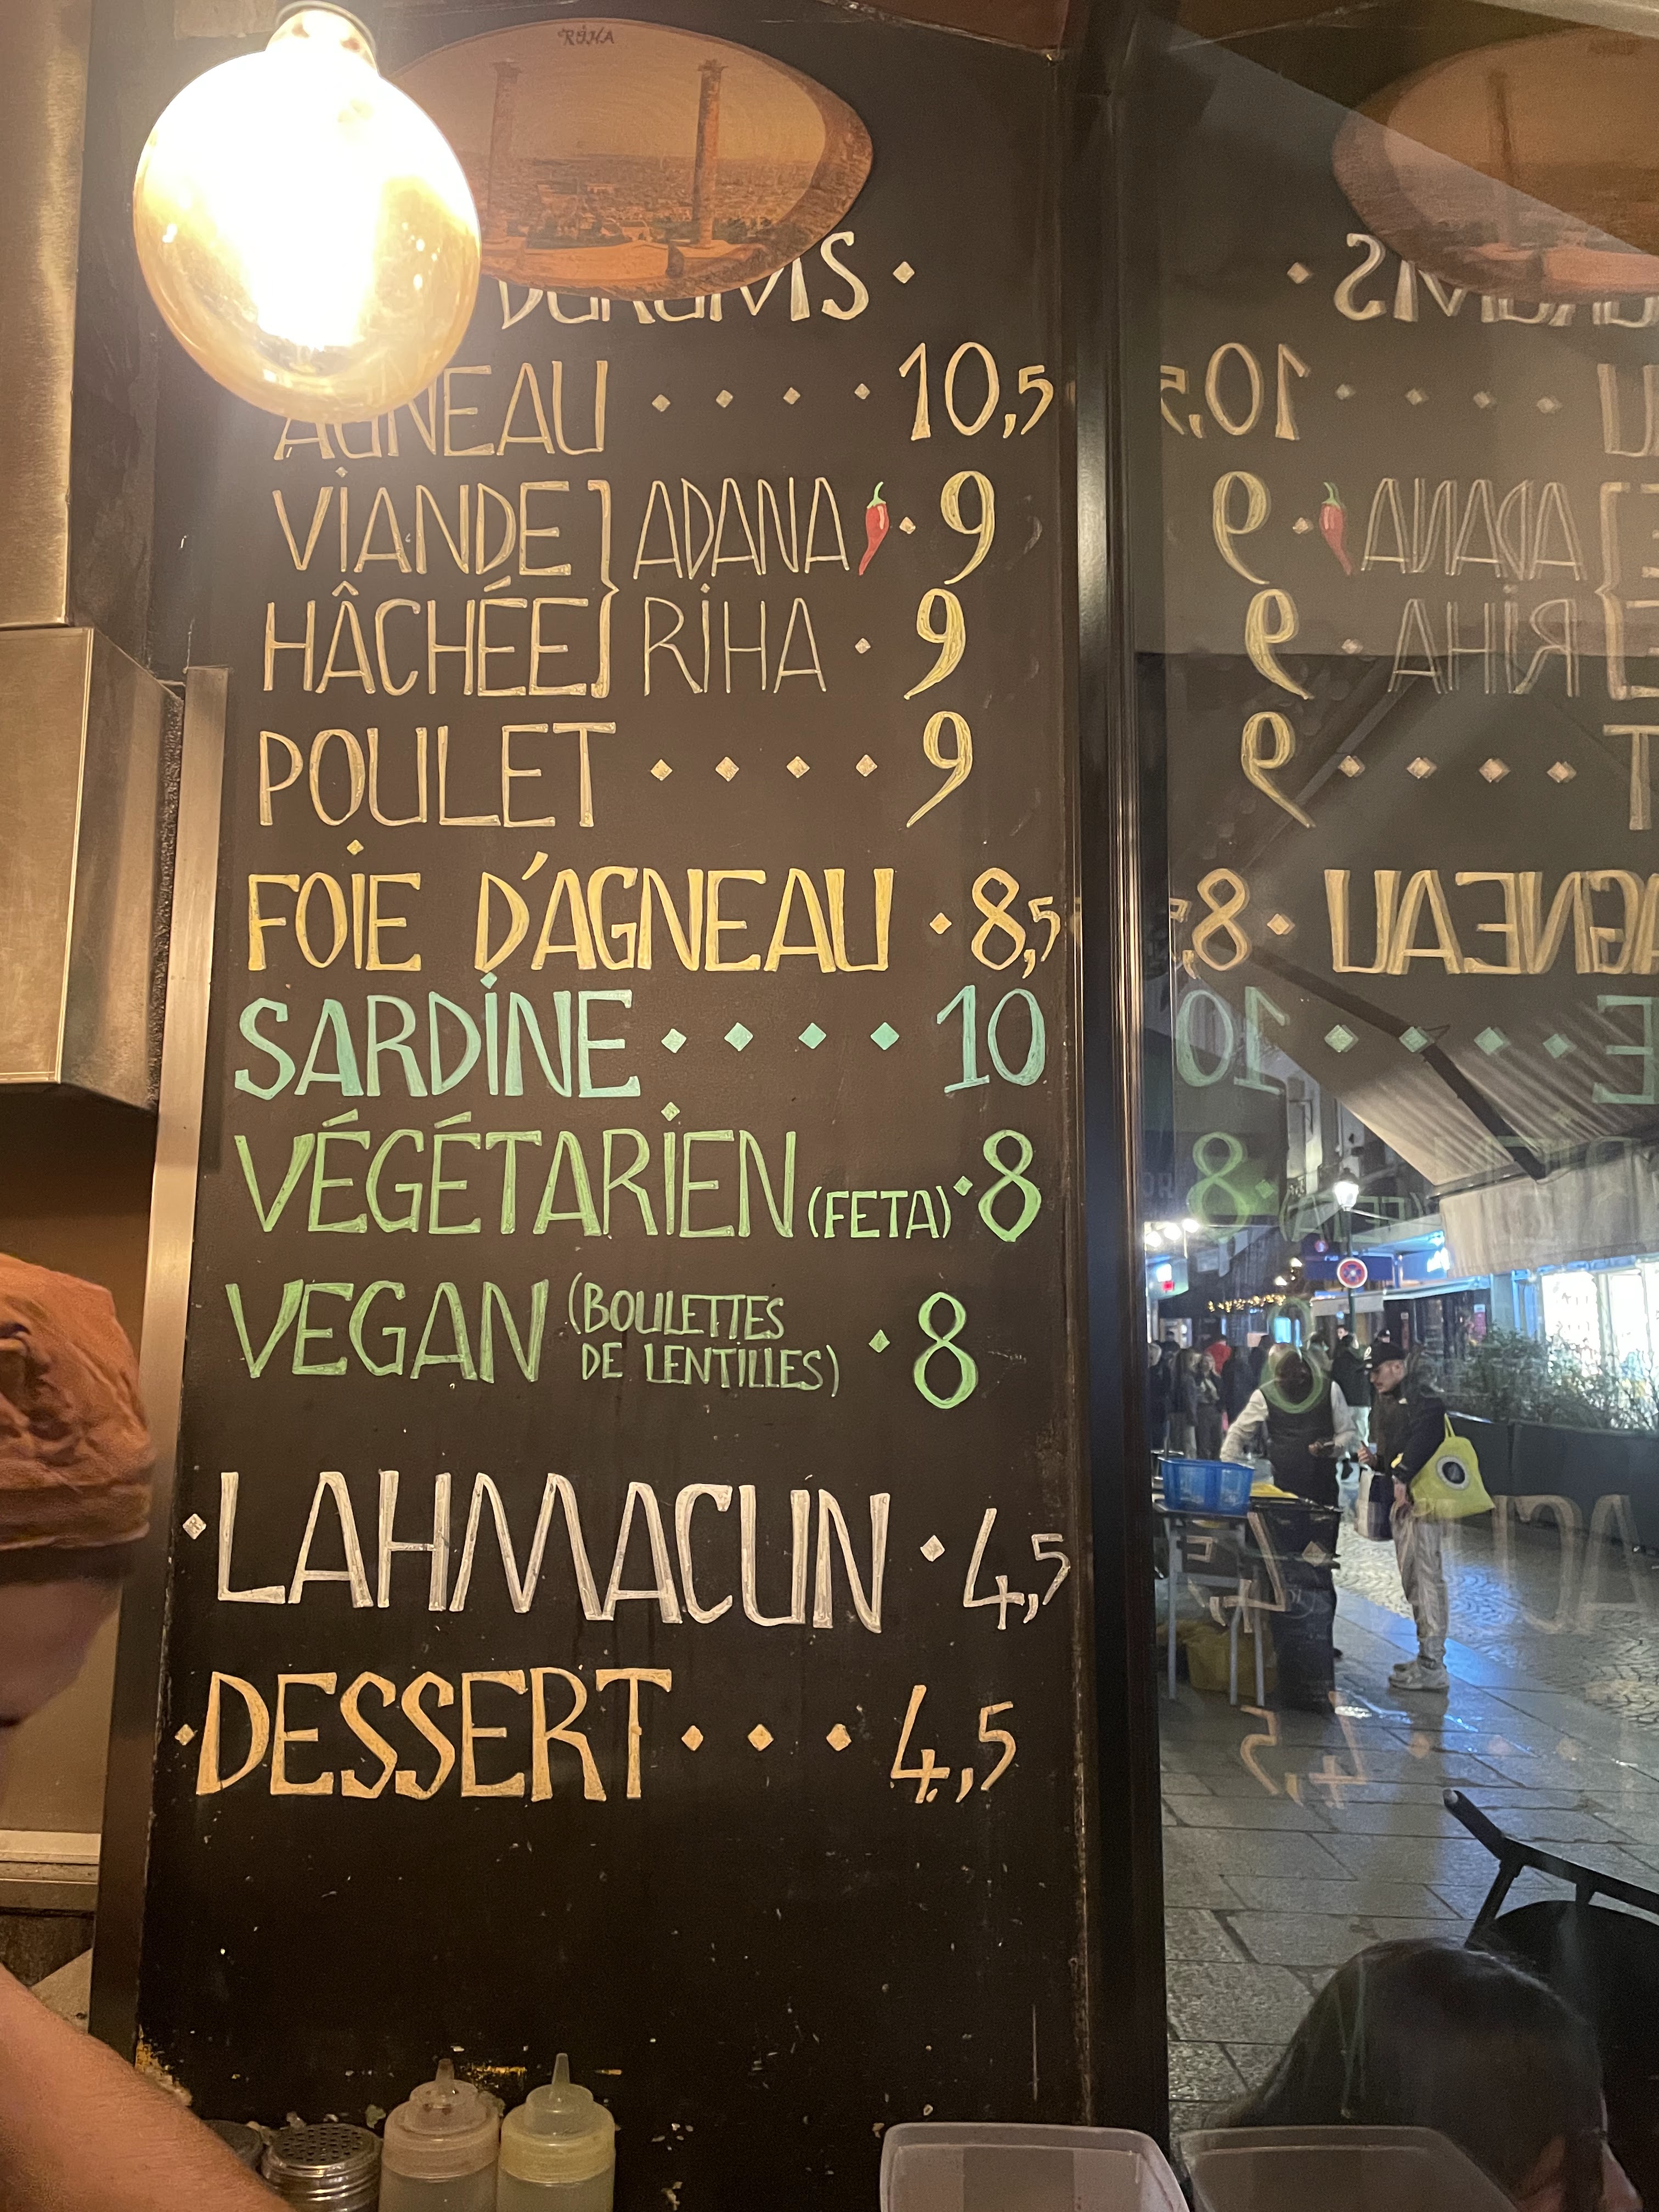 RÖMA
DÜRÜMS
AGNEAU 10,5
VIANDE HÂCHÉE
ADANA 9
RIHA 9
POULET 9
FOIE D'AGNEAU 8,5
SARDINE 10
VÉGÉTARIEN (FETA) 8
VEGAN (BOULETTES
DE LENTILLES) 8
LAHMACUN 4,5
DESSERT 4,5